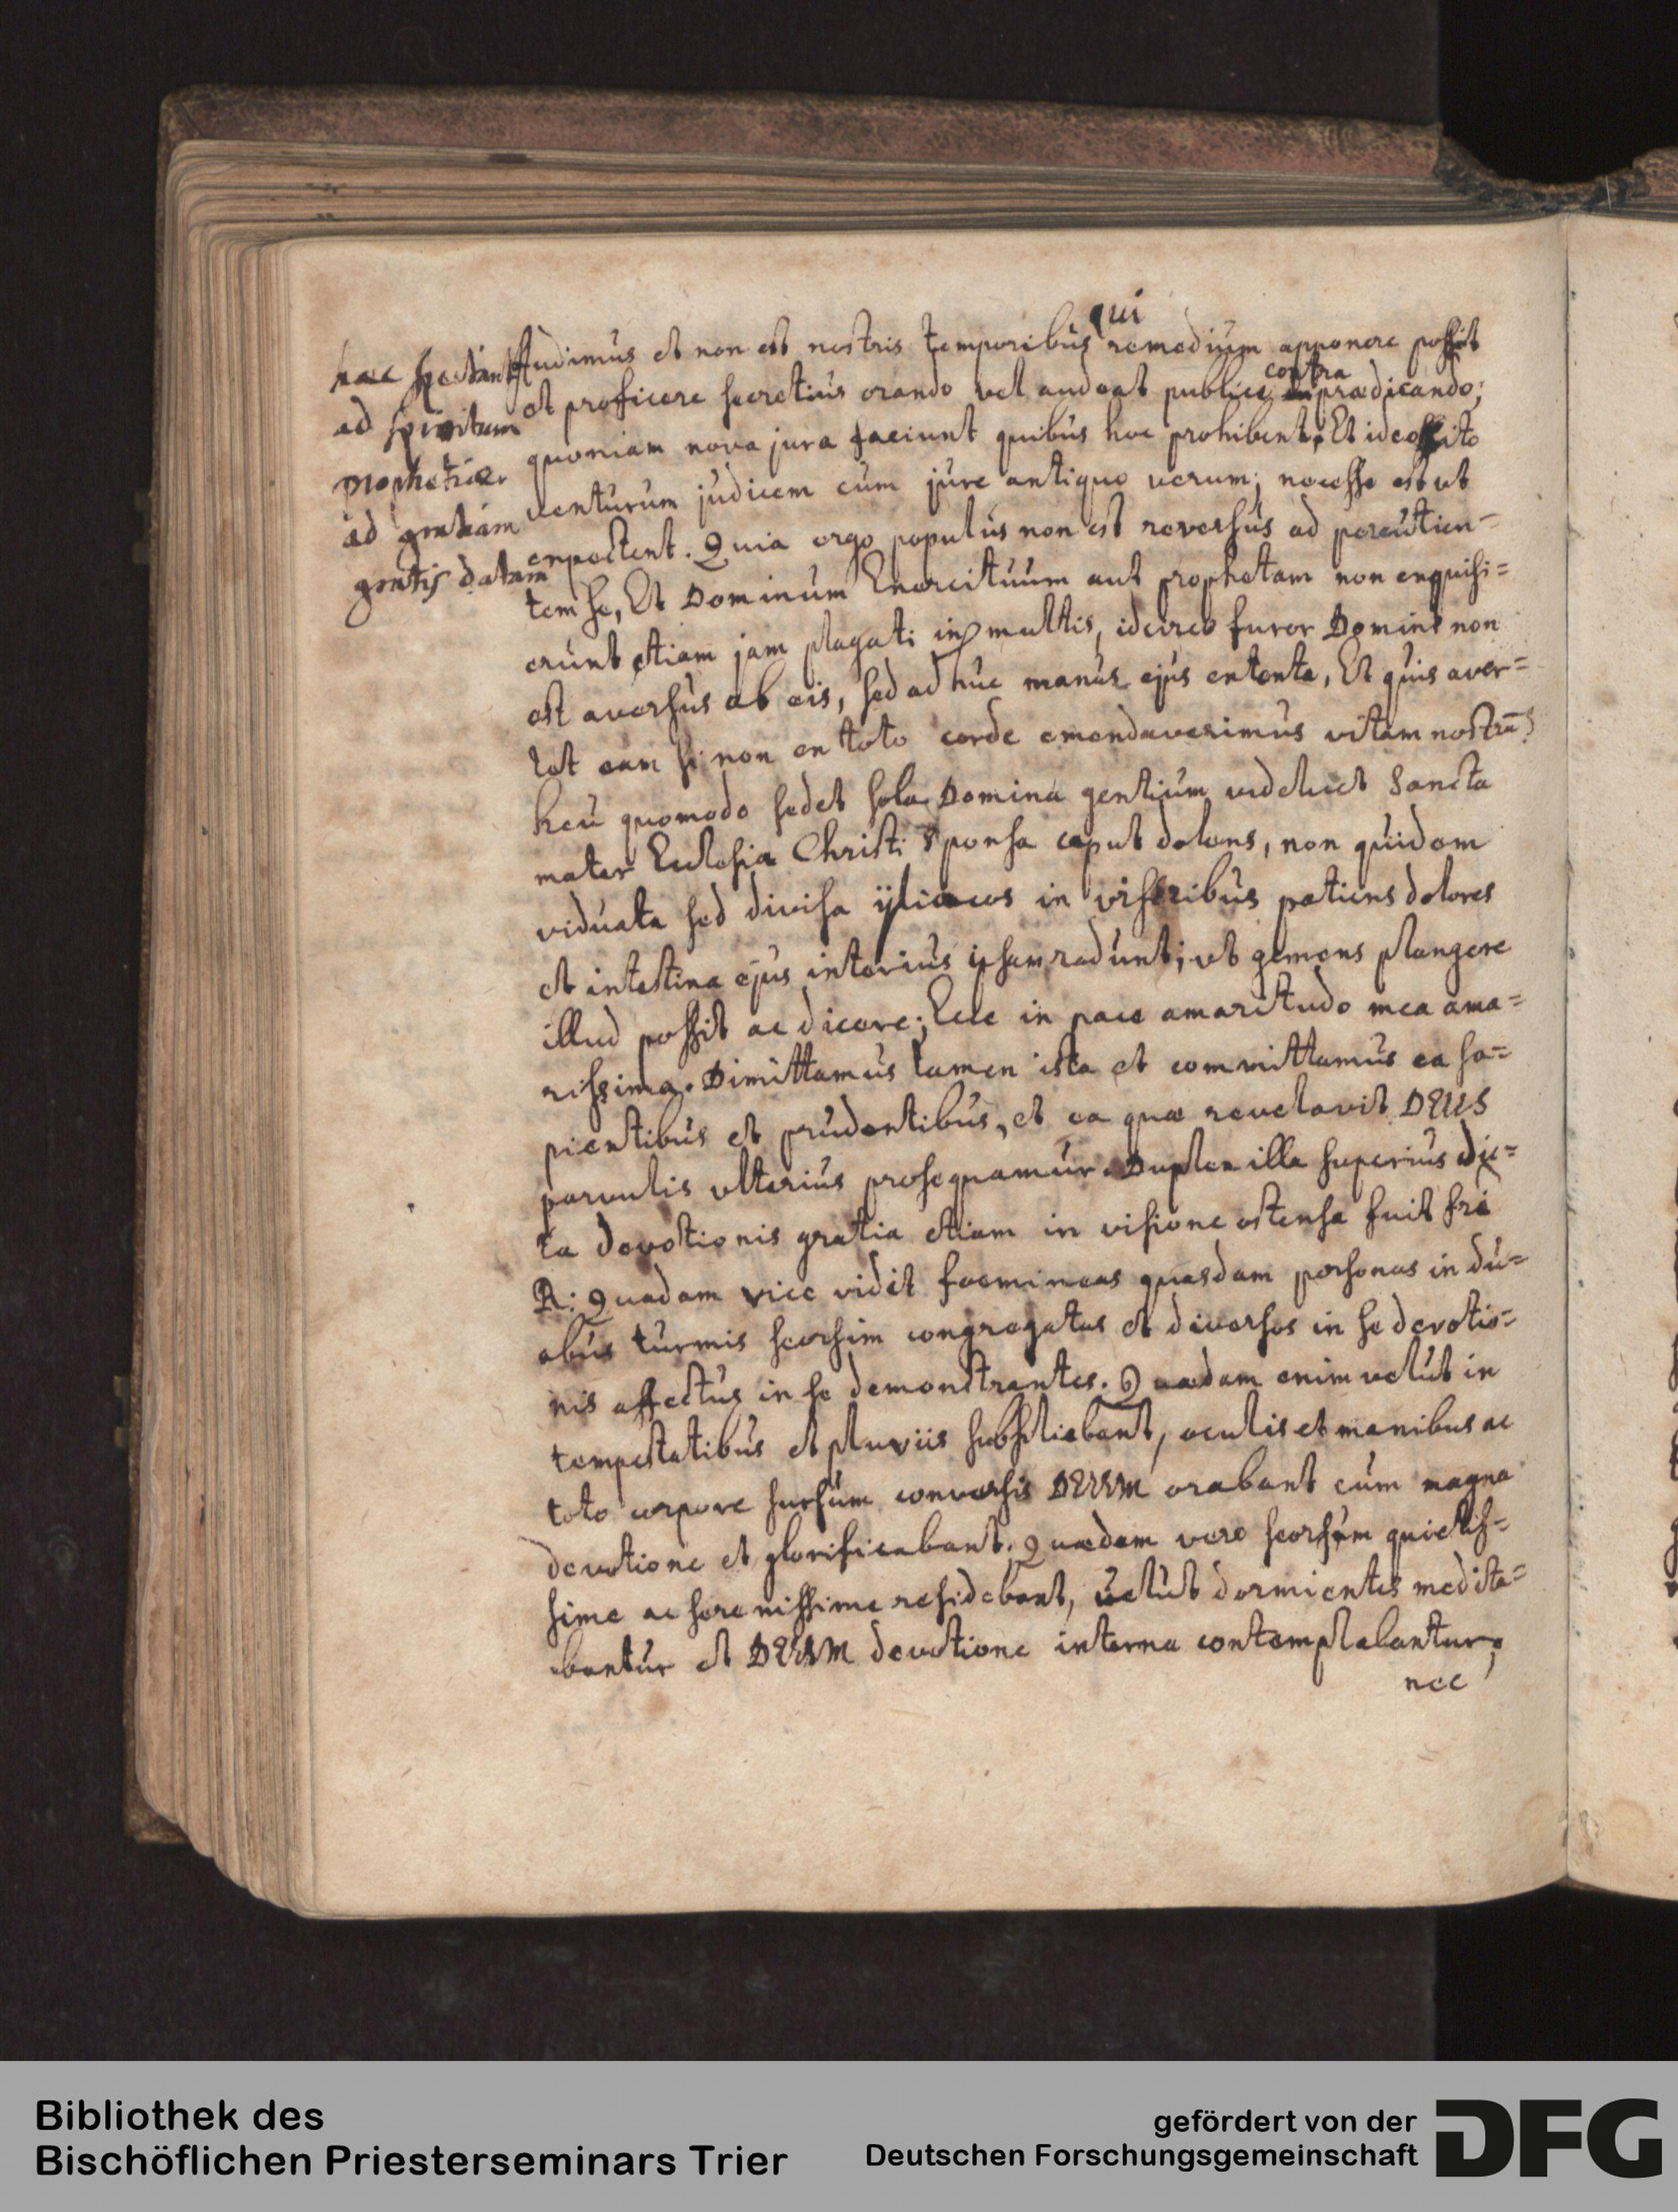 qui
Audimus et non est nostris temporibus remedium apponere possit
contra
et proficere secretius orando vel audeat publice prædicando;
quoniam nova jura faciunt quibus hoc prohibent, Et ideo cito
venturum judicem cum jure antiquo verum; necesse est ut
expectent. Quia ergo populus non est reversus ad percutien-
tem se, Et Dominum Exercituum aut prophetam non exquisi=
erunt etiam jam plagati in multis, idcirco furor Domini non
est aversus ab eis, sed ad huc manus ejus extenta, Et quis aver=
tet eam si non ex toto corde emendaverimus vitam nostrã?
heu quomodo sedet sola Domina gentium videlicet Sancta
mater Ecclesia Christi Sponsa caput dolens, non quidem
viduata sed divisa ÿliacos in visceribus patiens dolores
et intestina ejus interius ipsam radunt; ut gemens plangere
illud possit ac dicere; Ecce in pace amaritudo mea ama=
rissima. Dimittamus tamen ista et committamus ea sa=
pientibus et prudentibus, et ea quæ revelavit DEUS
parvulis ulterius prosequamur. Duplex illa superius dic=
ta devotionis gratia etiam in visione ostensa fuit fri
R: Quadam vice vidit foemineas quasdam personas in du=
abus turmis seorsim congregatas et diversos in se devotio=
nis affectus in se demonstrantes. Quædam enim velut in
tempestatibus et pluviis subsiliebant, oculis et manibus ac
toto corpore sursum conversis DEUM orabant cum magna
devotione et glorificabant. Quædam vero seorsum quietis=
sime ac serenissime residebant, velut dormientes medita=
bantur et DEUM devotione interna contemplabantur;
nec
hæc spectant
ad spiritum
prophetiæ
ad gratiam
gratis datam
Bibliothek des
Bischöflichen Priesterseminars Trier
gefördert von der
Deutschen Forschungsgemeinschaft
DFG